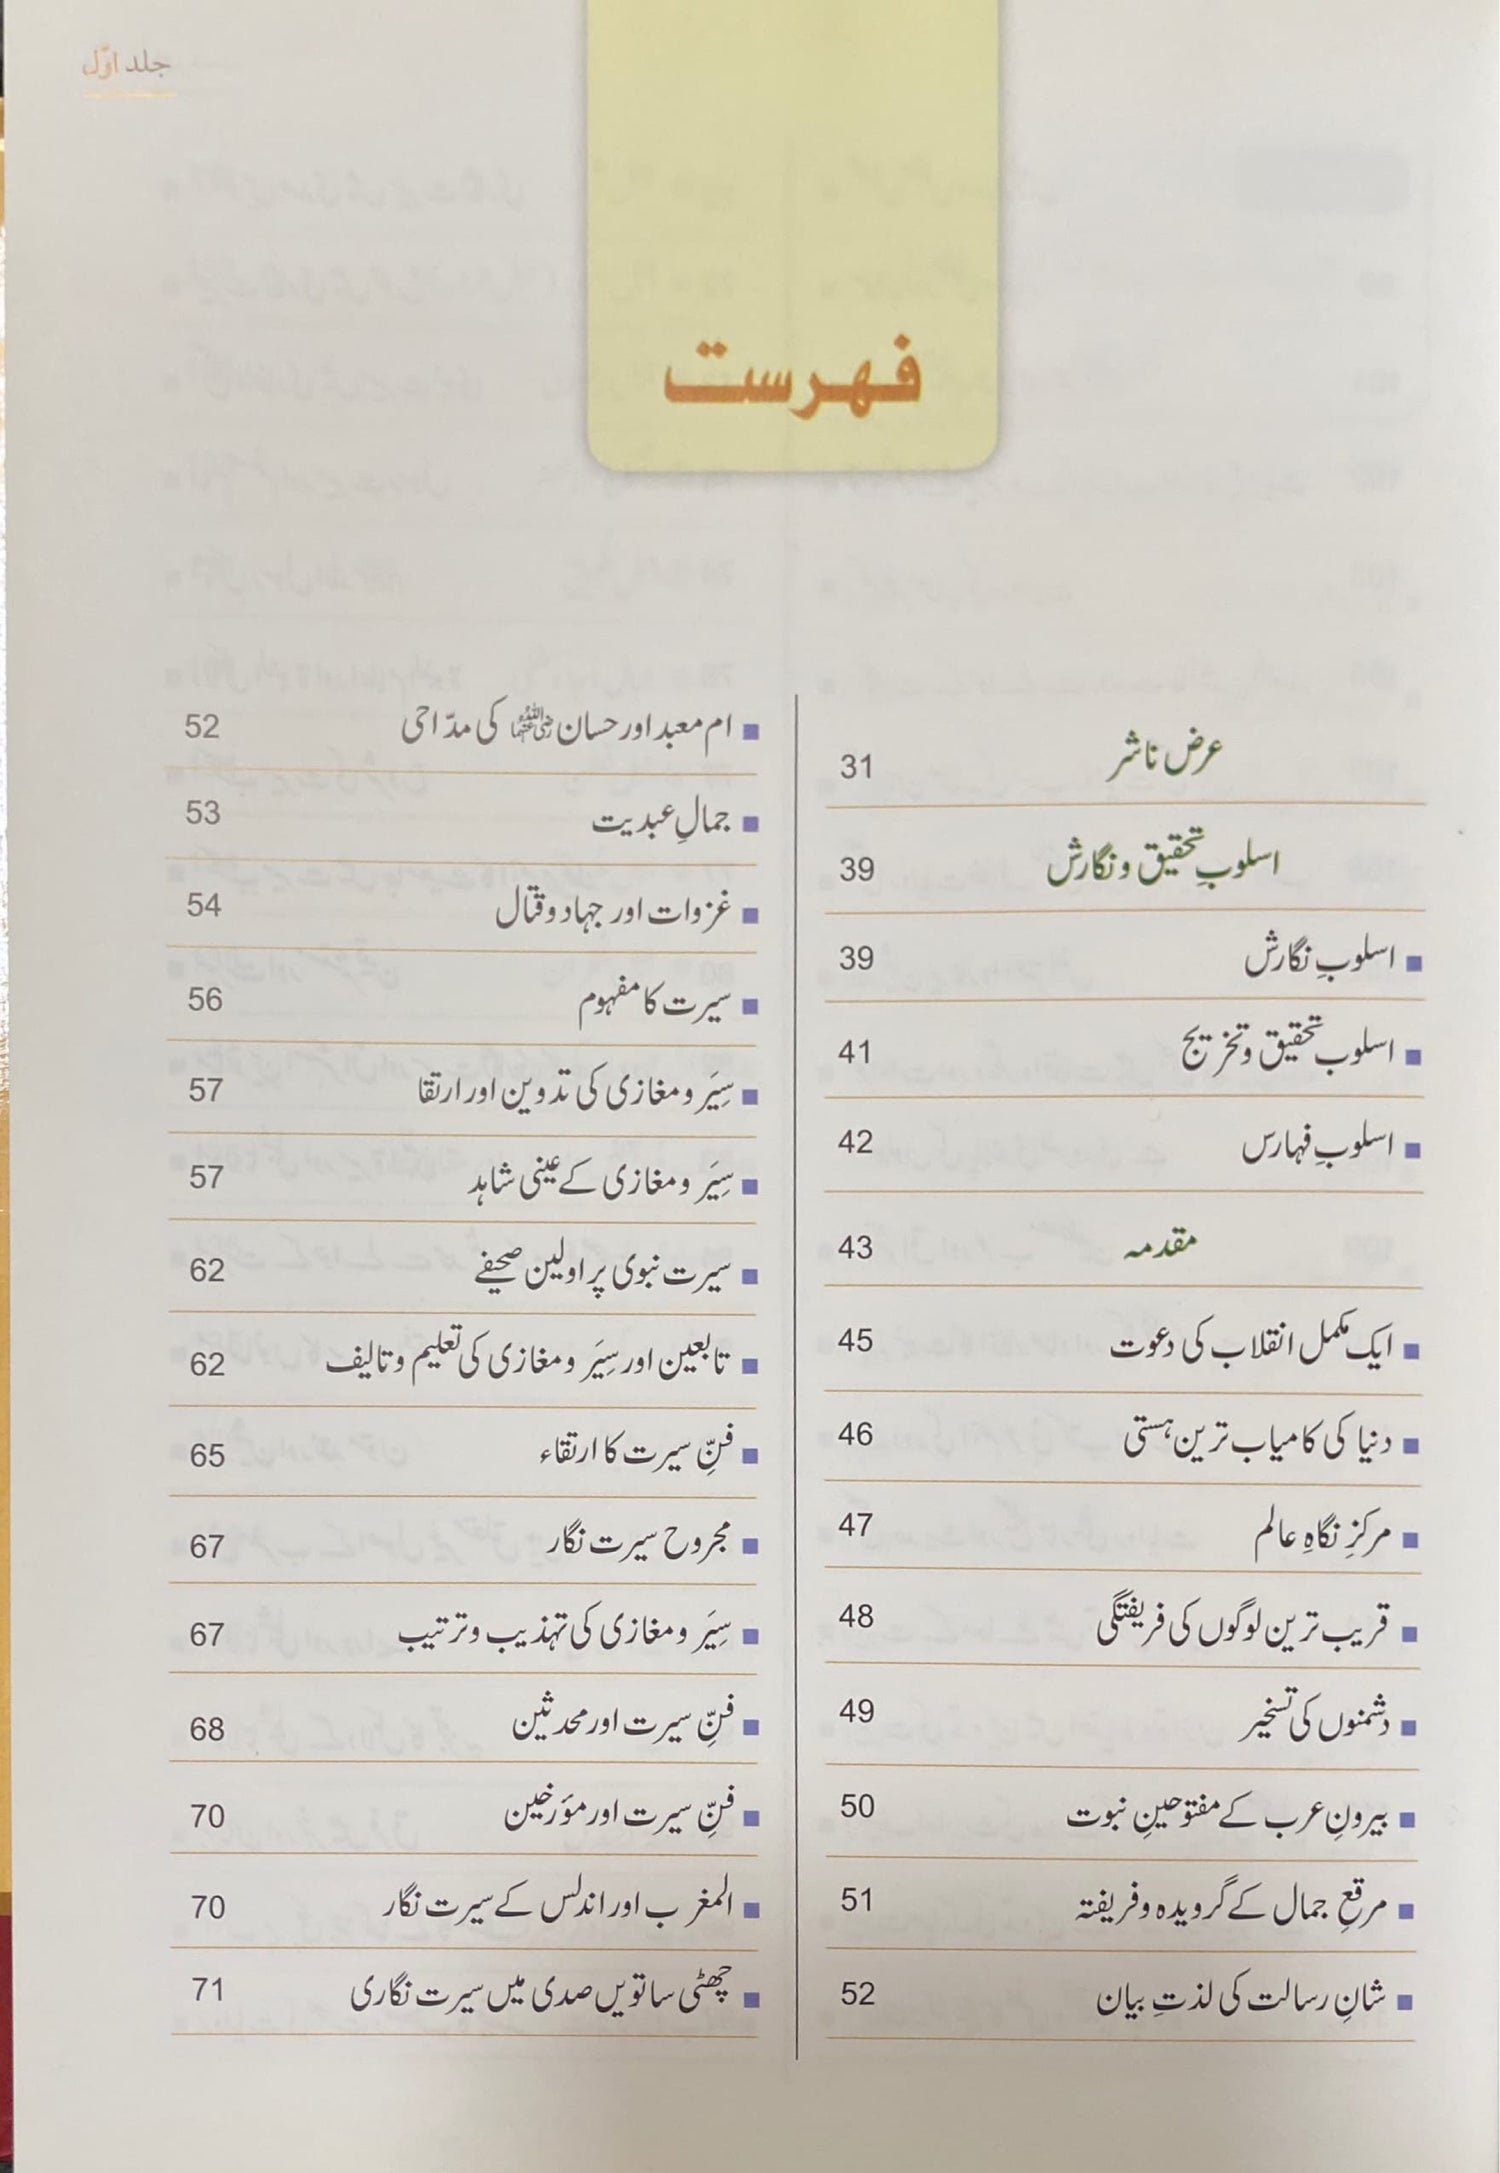 جلد اوّل
فہرست
عرض ناشر 31
اسلوبِ تحقیق و نگارش 39
اسلوبِ نگارش 39
اسلوب تحقیق و تخریج 41
اسلوبِ فہارس 42
مقدمہ 43
ایک مکمل انقلاب کی دعوت 45
دنیا کی کامیاب ترین ہستی 46
مرکزِ نگاہِ عالم 47
قریب ترین لوگوں کی فریفتگی 48
دشمنوں کی تسخیر 49
بیرونِ عرب کے مفتوحینِ نبوت 50
مرقعِ جمال کے گرویدہ و فریفتہ 51
شانِ رسالت کی لذتِ بیان 52
ام معبد اور حسان رضی اللہ عنہما کی مدّاحی 52
جمالِ عبدیت 53
غزوات اور جہاد و قتال 54
سیرت کا مفہوم 56
سِیَر و مغازی کی تدوین اور ارتقا 57
سِیَر و مغازی کے عینی شاہد 57
سیرت نبوی پر اولین صحیفے 62
تابعین اور سِیَر و مغازی کی تعلیم و تالیف 62
فنِّ سیرت کا ارتقاء 65
مجروح سیرت نگار 67
سِیَر و مغازی کی تہذیب و ترتیب 67
فنِّ سیرت اور محدثین 68
فنِّ سیرت اور مؤرخین 70
المغرب اور اندلس کے سیرت نگار 70
چھٹی ساتویں صدی میں سیرت نگاری 71